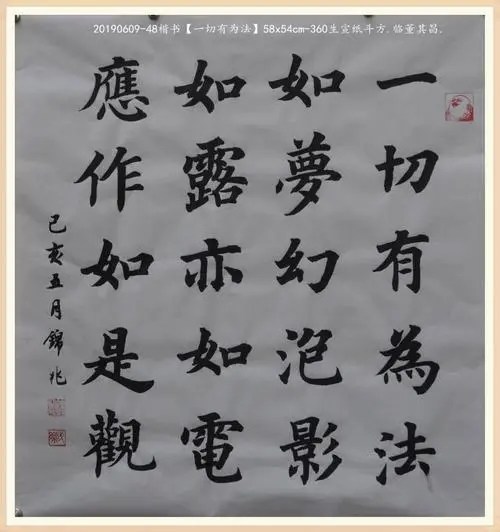 20190609-48楷书【一切有为法】58x54cm-360生宣纸斗方.临董其昌.
一切有為法
如夢幻泡影
如露亦如電
應作如是觀
己亥五月錦兆